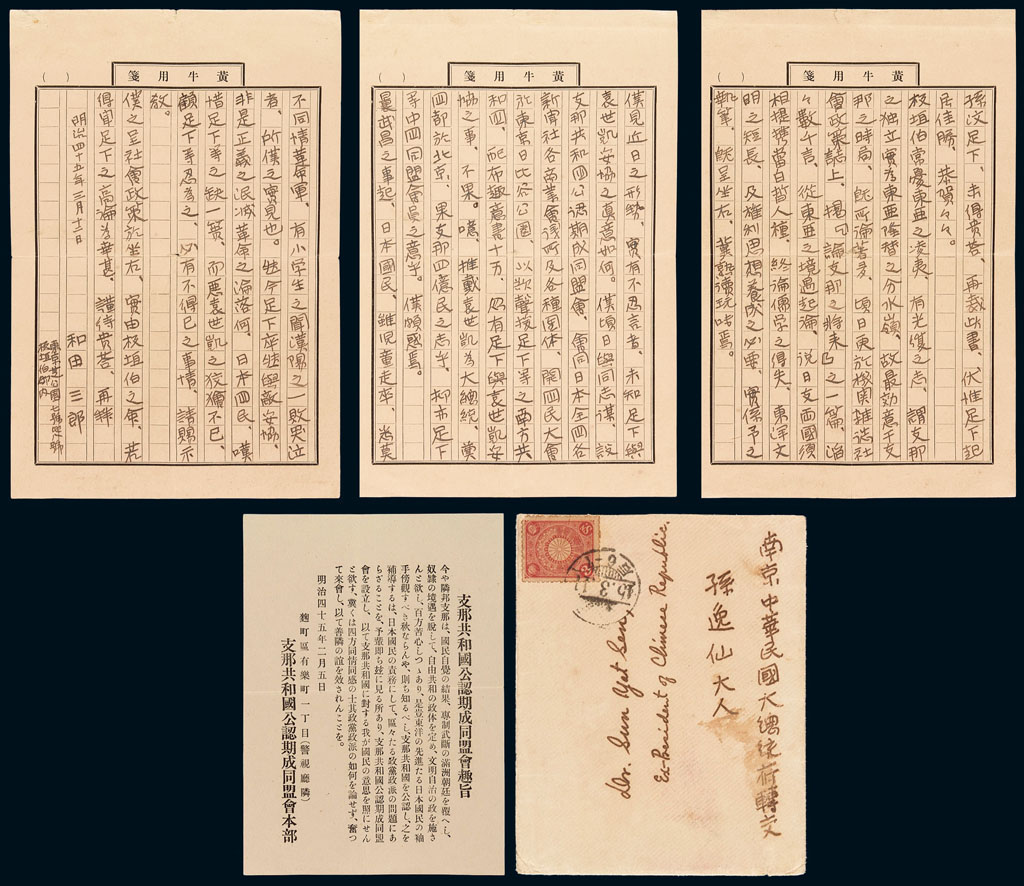 黃牛用箋
孫汶足下、未得貴荅、再裁此書、伏惟足下起
居佳勝、恭賀々々。
板垣伯嘗憂東亜之凌夷、有光復之志、謂支那
之独立實為東亜隆替之分水嶺、故最効意于支
那之時局、既所論著多、頃日東於機関雜誌社
會政策誌上、揭 論支那之將来 之一篇、滔
々數千言、從東亜之境遇起論、説日支両國須
相提携當白皙人種、終論儒学之得失、東洋文
明之短長、及権利思想養成之必要、實係予之
執筆、既呈坐右、冀熟讀玩味焉。
黃牛用箋
僕見近日之形勢、實有不忍言者、未知足下與
袁世凱妥協之真意如何。僕頃日與同志謀、設
支那共和国公認期成同盟會、會同日本全国各
新聞社各商業會議所及各種團体、開国民大會
於東京日比谷公園、以欲聲援足下等之南方共
和国、配布趣意書十万、仍有足下與袁世凱妥
協之事、不果。噫、推載袁世凱為大總統、奠
国都於北京、果支那四億民之志乎、抑亦足下
等中国同盟會員之意乎。僕頗惑焉。
曩武昌之事起、日本國民、雖児童走卒、尚莫
黃牛用箋
不同情革命軍、有小学生之聞漢陽之一敗哭泣
者、所僕之實見也。然今足下卒然與敵妥協、
非是正義之泯滅革命之淪落何、日本国民、嘆
惜足下等之缺一貫、而悪袁世凱之狡獪不已、
顧足下等忍為之、必有不得已之事情、請賜示
教。
僕之呈社會政策於坐右、實由板垣伯之命、若
得聞足下之高論為幸甚、謹待貴荅、再拜
明治四十五年三月十三日
和田三郎
東京芝公園七號地
板垣伯邸内
支那共和國公認期成同盟會趣旨
今や隣邦支那は、國民自覺の結果、專制武斷の滿洲朝廷を覆へし、
奴隷の境遇を脱して、自由共和の政体を定め、文明自治の政を施さ
んと欲し、百方苦心しつゝあり、是豈東洋の先進たる日本國民の袖
手傍觀すべき秋ならんや、則ち知るべし、支那共和國を公認し、之を
補導するは、日本國民の責務にして、區々たる政黨政派の問題にあ
らざることを、予輩即ち玆に見る所あり、支那共和國公認期成同盟
會を設立し、以て支那共和國に對する我が國民の意思を照にせん
と欲す、冀くは四方同情同感の士其政黨政派の如何を論せず、奮つ
て來會し、以て善隣の誼を效されんことを。
明治四十五年二月五日
麴町區有樂町一丁目(警視廳隣)
支那共和國公認期成同盟會本部
南京中華民國大總統府轉交
孫逸仙大人
Dr. Sun Yat Sen,
Ex-President of Chinese Republic.